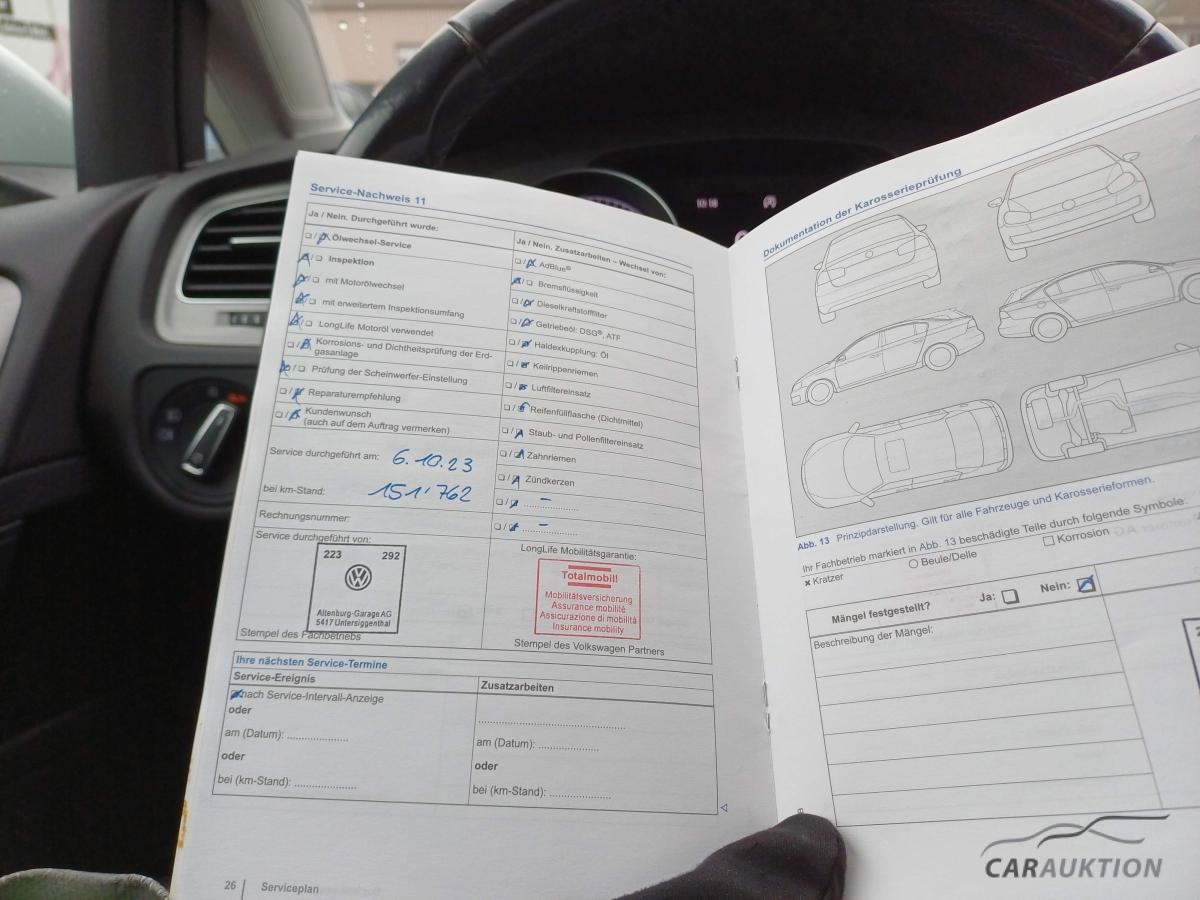 Service-Nachweis 11
Ja / Nein. Durchgeführt wurde:
Ölwechsel-Service
Inspektion
mit Motorölwechsel
mit erweitertem Inspektionsumfang
LongLife Motoröl verwendet
Korrosions- und Dichtheitsprüfung der Erd-
gasanlage
Prüfung der Scheinwerfer-Einstellung
Reparaturempfehlung
Kundenwunsch
(auch auf dem Auftrag vermerken)
Service durchgeführt am: 6.10.23
bei km-Stand: 151'762
Rechnungsnummer:
Service durchgeführt von:
223 292
Altenburg-Garage AG
5417 Untersiggenthal
Stempel des Fachbetriebs
Ja / Nein. Zusatzarbeiten – Wechsel von:
AdBlue®
Bremsflüssigkeit
Dieselkraftstofffilter
Getriebeöl: DSG®, ATF
Haldexkupplung: Öl
Keilrippenriemen
Luftfiltereinsatz
Reifenfüllflasche (Dichtmittel)
Staub- und Pollenfiltereinsatz
Zahnriemen
Zündkerzen
LongLife Mobilitätsgarantie:
Totalmobil!
Mobilitätsversicherung
Assurance mobilité
Assicurazione di mobilità
Insurance mobility
Stempel des Volkswagen Partners
Ihre nächsten Service-Termine
Service-Ereignis
nach Service-Intervall-Anzeige
oder
am (Datum): ....................
oder
bei (km-Stand): ....................
Zusatzarbeiten
am (Datum): ....................
oder
bei (km-Stand): ....................
26 Serviceplan
Dokumentation der Karosserieprüfung
Abb. 13 Prinzipdarstellung. Gilt für alle Fahrzeuge und Karosserieformen.
Ihr Fachbetrieb markiert in Abb. 13 beschädigte Teile durch folgende Symbole:
Kratzer Beule/Delle Korrosion
Mängel festgestellt? Ja: Nein:
Beschreibung der Mängel:
CARAUKTION